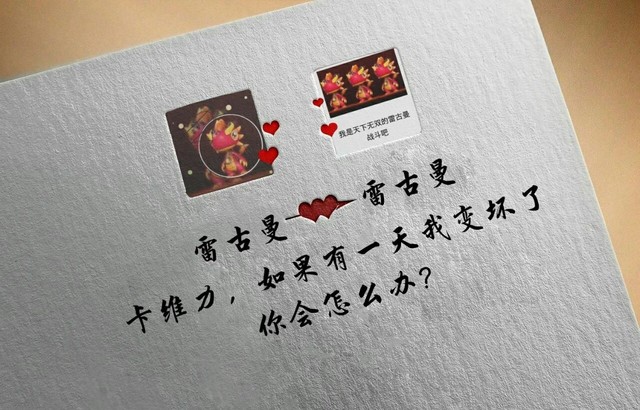 我是天下无双的雷古曼
战斗吧
雷古曼
雷古曼
卡维力，如果有一天我变坏了
你会怎么办？